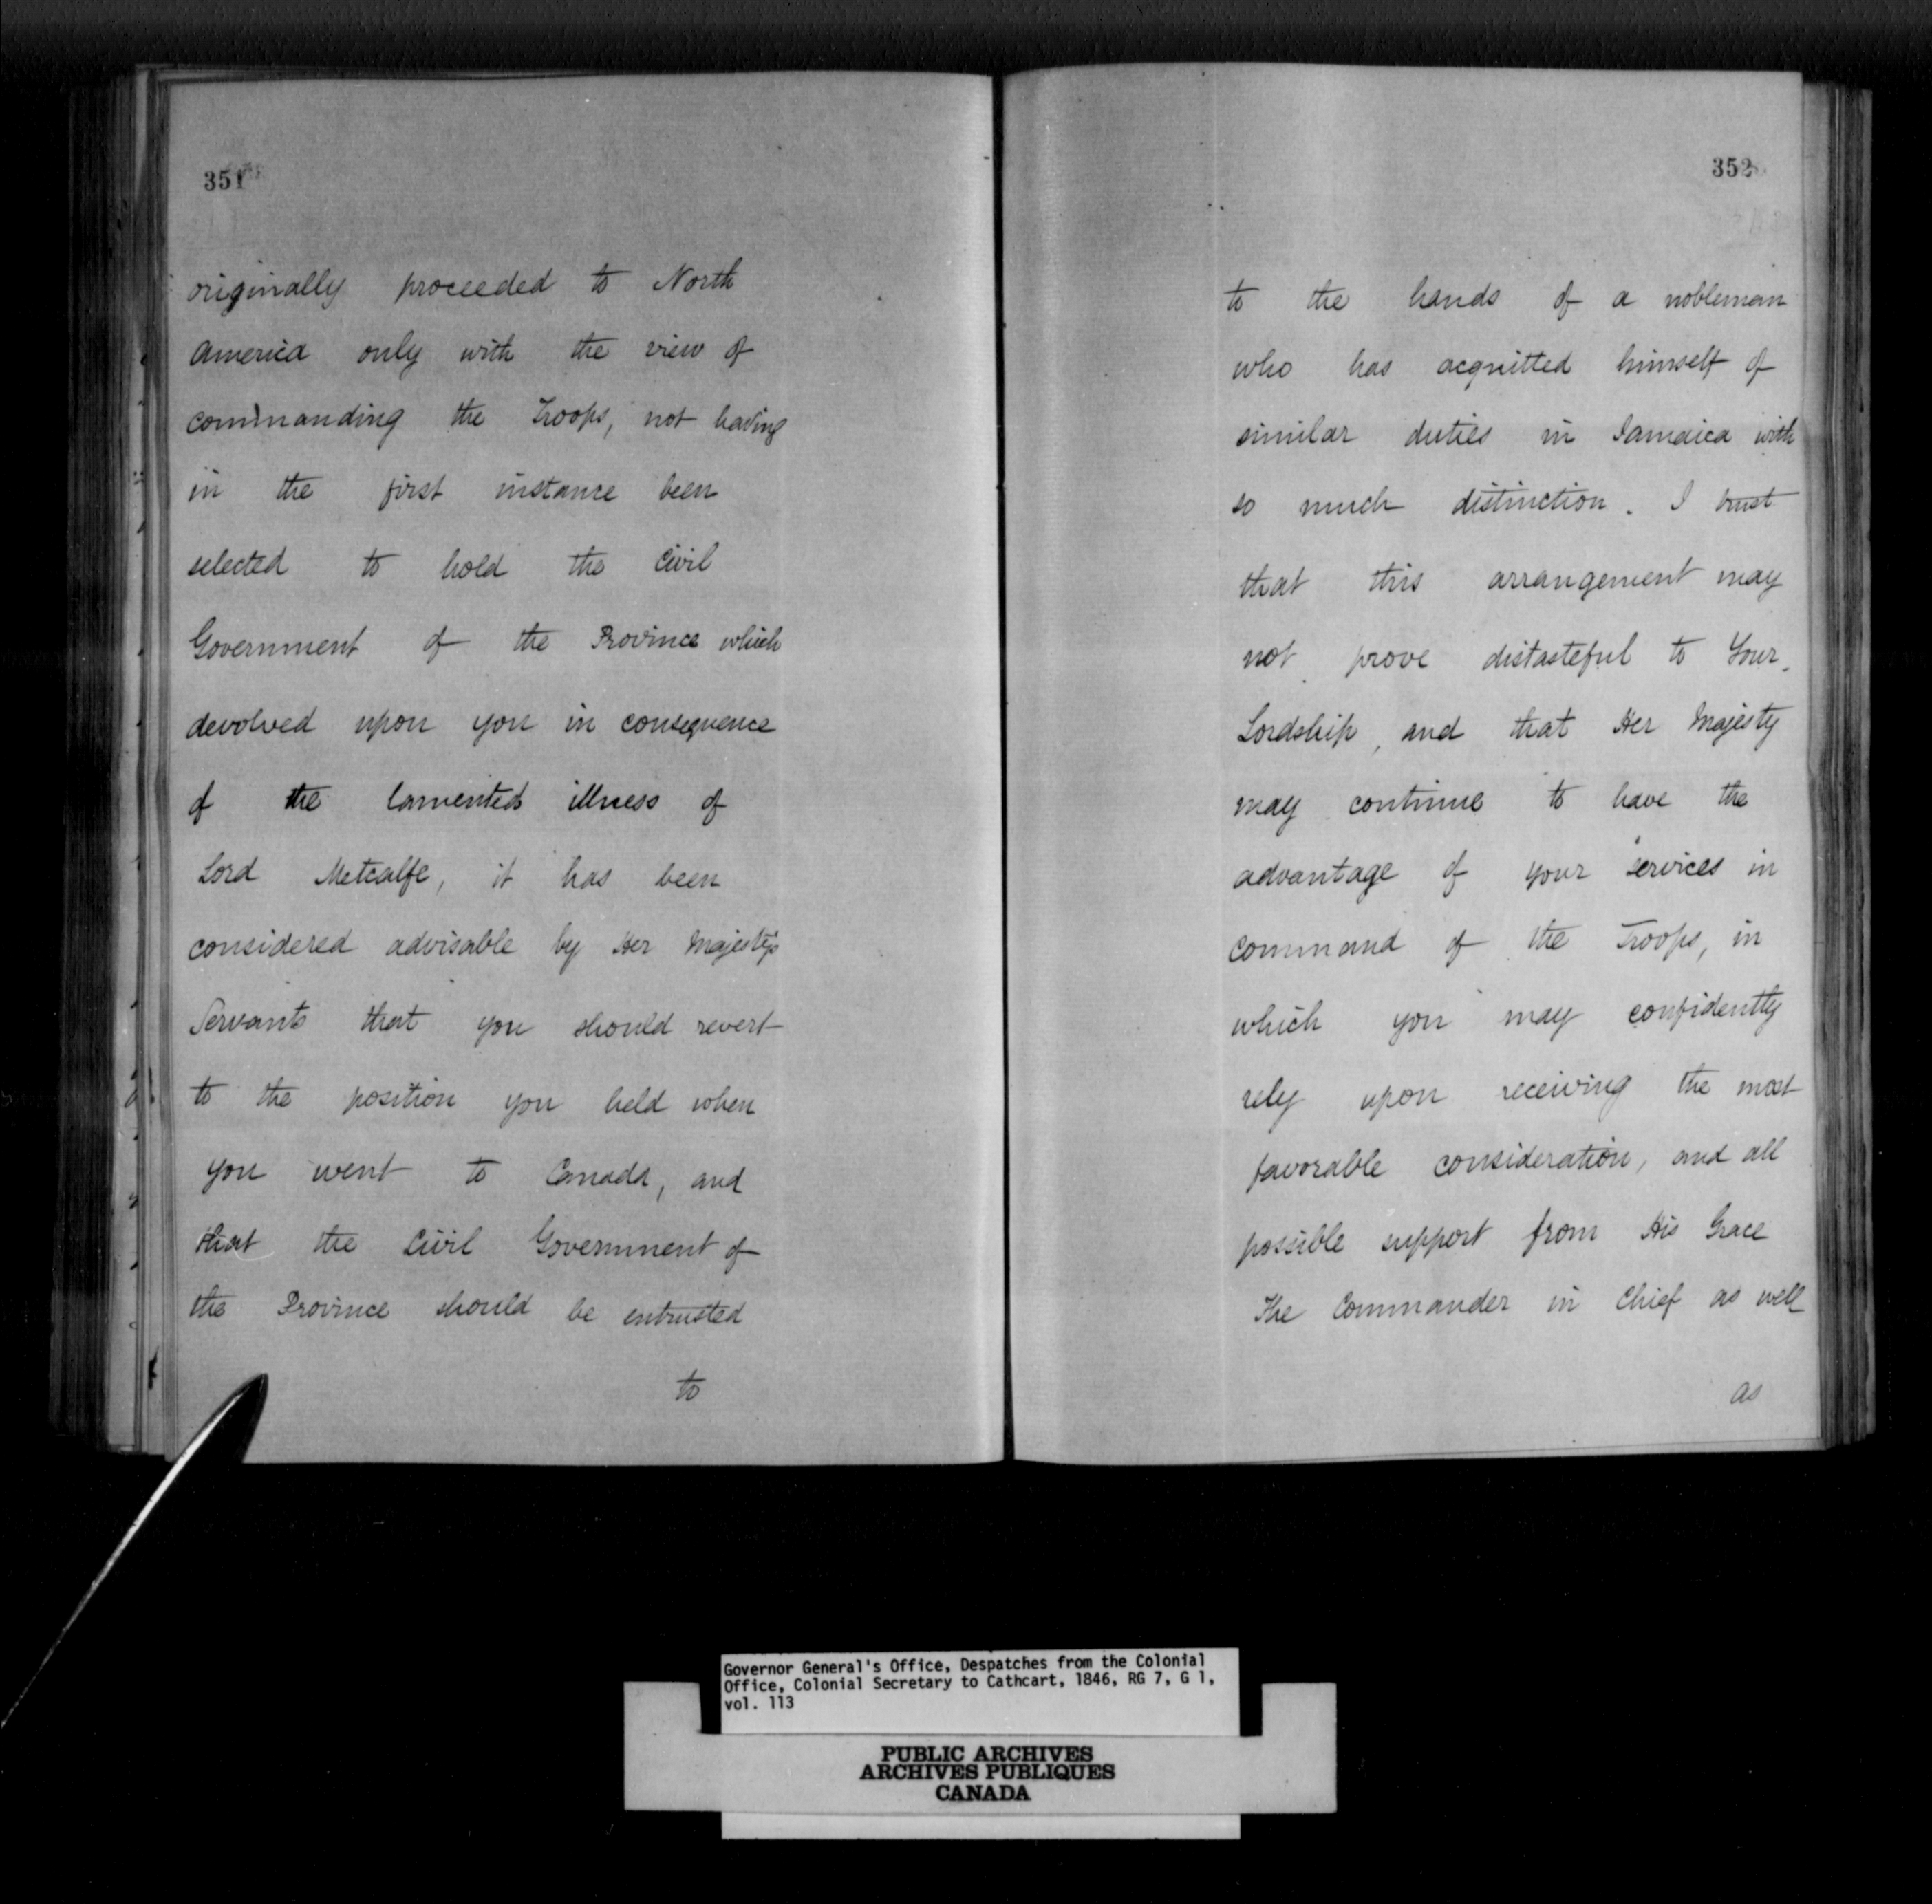 351
originally proceeded to North
America only with the view of
commanding the Troops, not having
in the first instance been
selected to hold the Civil
Government of the Province which
devolved upon you in consequence
of the lamented illness of
Lord Metcalfe, it has been
considered advisable by Her Majesty's
Servants that you should revert
to the position you held when
you went to Canada, and
that the Civil Government of
the Province should be entrusted
to
352
to the hands of a nobleman
who has acquitted himself of
similar duties in Jamaica with
so much distinction. I trust
that this arrangement may
not prove distasteful to Your
Lordship, and that Her Majesty
may continue to have the
advantage of your services in
command of the Troops, in
which you may confidently
rely upon receiving the most
favorable consideration, and all
possible support from His Grace
The Commander in Chief as well
as
Governor General's Office, Despatches from the Colonial
Office, Colonial Secretary to Cathcart, 1846, RG 7, G 1,
vol. 113
PUBLIC ARCHIVES
ARCHIVES PUBLIQUES
CANADA